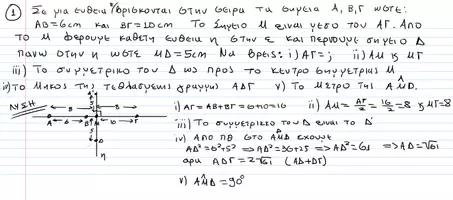 ① Σε μια ευθεια ε βρισκονται στην σειρα τα σημεια Α, Β, Γ ωστε:
ΑΒ=6cm και ΒΓ=10cm Το Σημειο Μ ειναι μεσο του ΑΓ. Απο
το Μ φερουμε καθετη ευθεια η στην ε και περνουμε σημειο Δ
πανω στην η ωστε ΜΔ=5cm Να βρεις: i) ΑΓ=; ii) ΑΜ κ ΜΓ
iii) Το συμμετρικο του Δ ως προς το κεντρο συμμετριας Μ
iv) Το μηκος της τεθλασμενης γραμμης ΑΔΓ v) Το μετρο της ΑΜΔ.
ΛΥΣΗ
i) ΑΓ=ΑΒ+ΒΓ=6+10=16 ii) ΑΜ=ΑΓ/2=16/2=8 κ ΜΓ=8
iii) Το συμμετρικο του Δ ειναι το Δ'
iv) Απο ΠΘ στο ΑΜΔ εχουμε
ΑΔ²=6²+5² ⇒ ΑΔ²=36+25 ⇒ ΑΔ²=61 ⇒ ΑΔ=√61
αρα ΑΔΓ=2√61 (ΑΔ+ΔΓ)
v) ΑΜΔ=90°
8 8
Α 6 Β Μ 10 Γ
Δ
η